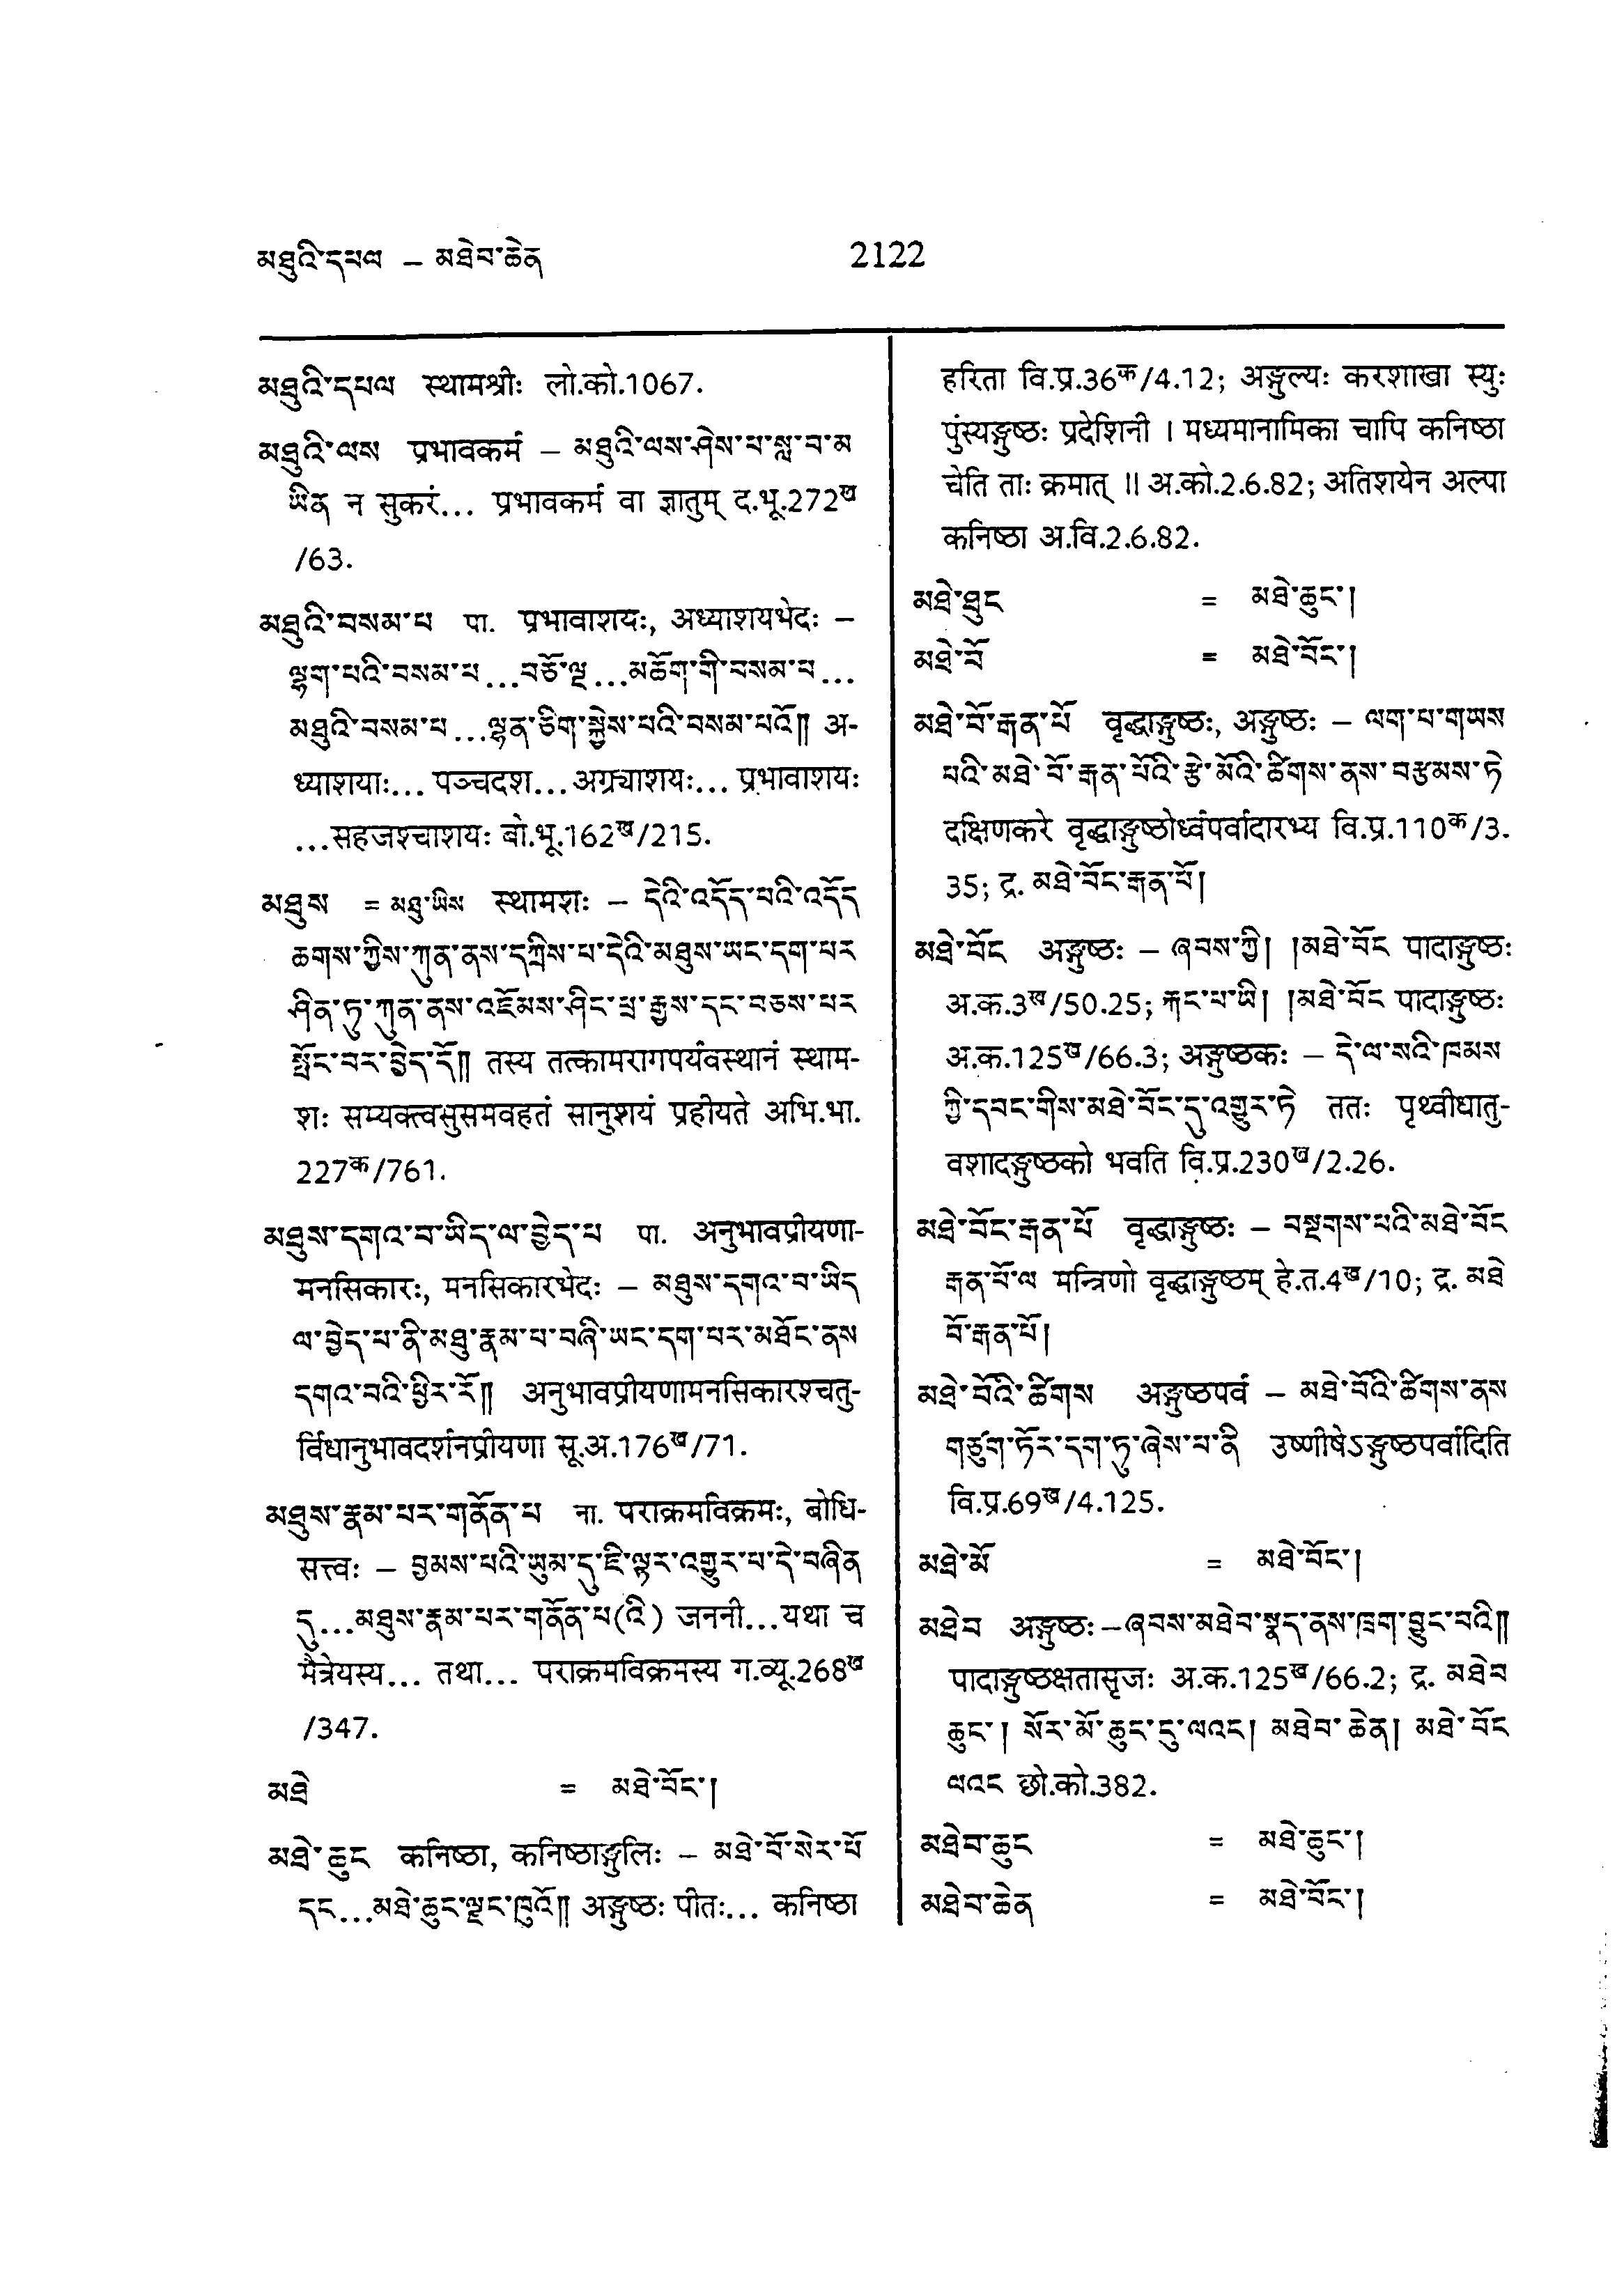 མཐུའི་དཔལ – མཐེབ་ཆེན
2122
མཐུའི་དཔལ स्थामश्रीः लो.को.1067.
མཐུའི་ལས प्रभावकर्म – མཐུའི་ལས་ཤེས་པ་སླ་བ་མ
ཡིན न सुकरं... प्रभावकर्म वा ज्ञातुम् द.भू.272ख
/63.
མཐུའི་བསམ་པ पा. प्रभावाशयः, अध्याशयभेदः –
ལྷག་པའི་བསམ་པ...བཅོ་ལྔ...མཆོག་གི་བསམ་པ...
མཐུའི་བསམ་པ...ལྷན་ཅིག་སྐྱེས་པའི་བསམ་པའོ༎ अ-
ध्याशयाः... पञ्चदश...अग्र्याशयः... प्रभावाशयः
...सहजश्चाशयः बो.भू.162ख/215.
མཐུས = མཐུ་ཡིས स्थामशः – དེའི་འདོད་པའི་འདོད
ཆགས་ཀྱིས་ཀུན་ནས་དཀྲིས་པ་དེའི་མཐུས་ཡང་དག་པར
ཤིན་ཏུ་ཀུན་ནས་འཇོམས་ཤིང་ཕྲ་རྒྱས་དང་བཅས་པར
སྤོང་བར་བྱེད་དོ༎ तस्य तत्कामरागपर्यवस्थानं स्थाम-
शः सम्यक्त्वसुसमवहतं सानुशयं प्रहीयते अभि.भा.
227क/761.
མཐུས་དགའ་བ་ཡིད་ལ་བྱེད་པ पा. अनुभावप्रीयणा-
मनसिकारः, मनसिकारभेदः – མཐུས་དགའ་བ་ཡིད
ལ་བྱེད་པ་ནི་མཐུ་རྣམ་པ་བཞི་ཡང་དག་པར་མཐོང་ནས
དགའ་བའི་ཕྱིར་རོ༎ अनुभावप्रीयणामनसिकारश्चतु-
र्विधानुभावदर्शनप्रीयणा सू.अ.176ख/71.
མཐུས་རྣམ་པར་གནོན་པ ना. पराक्रमविक्रमः, बोधि-
सत्त्वः – བྱམས་པའི་ཡུམ་དུ་ཇི་ལྟར་འགྱུར་པ་དེ་བཞིན
དུ...མཐུས་རྣམ་པར་གནོན་པ(འི) जननी...यथा च
मैत्रेयस्य... तथा... पराक्रमविक्रमस्य ग.व्यू.268ख
/347.
མཐེ = མཐེ་བོང་།
མཐེ་ཆུང कनिष्ठा, कनिष्ठाङ्गुलिः – མཐེ་བོ་སེར་པོ
དང...མཐེ་ཆུང་ལྗང་ཁུའོ༎ अङ्गुष्ठः पीतः... कनिष्ठा
हरिता वि.प्र.36क/4.12; अङ्गुल्यः करशाखा स्युः
पुंस्यङ्गुष्ठः प्रदेशिनी । मध्यमानामिका चापि कनिष्ठा
चेति ताः क्रमात् ॥ अ.को.2.6.82; अतिशयेन अल्पा
कनिष्ठा अ.वि.2.6.82.
མཐེ་ཐུང = མཐེ་ཆུང་།
མཐེ་བོ = མཐེ་བོང་།
མཐེ་བོ་རྒན་པོ वृद्धाङ्गुष्ठः, अङ्गुष्ठः – ལག་པ་གཡས
པའི་མཐེ་བོ་རྒན་པོའི་རྩེ་མོའི་ཚིགས་ནས་བརྩམས་ཏེ
दक्षिणकरे वृद्धाङ्गुष्ठोर्ध्वपर्वादारभ्य वि.प्र.110क/3.
35; द्र. མཐེ་བོང་རྒན་པོ།
མཐེ་བོང अङ्गुष्ठः – ཞབས་ཀྱི། །མཐེ་བོང पादाङ्गुष्ठः
अ.क.3ख/50.25; རྐང་པ་ཡི། །མཐེ་བོང पादाङ्गुष्ठः
अ.क.125ख/66.3; अङ्गुष्ठकः – དེ་ལ་སའི་ཁམས
ཀྱི་དབང་གིས་མཐེ་བོང་དུ་འགྱུར་ཏེ ततः पृथ्वीधातु-
वशादङ्गुष्ठको भवति वि.प्र.230ख/2.26.
མཐེ་བོང་རྒན་པོ वृद्धाङ्गुष्ठः – བསྔགས་པའི་མཐེ་བོང
རྒན་པོ་ལ मन्त्रिणो वृद्धाङ्गुष्ठम् हे.त.4ख/10; द्र. མཐེ
བོ་རྒན་པོ།
མཐེ་བོའི་ཚིགས अङ्गुष्ठपर्व – མཐེ་བོའི་ཚིགས་ནས
གཙུག་ཏོར་དག་ཏུ་ཞེས་པ་ནི उष्णीषेऽङ्गुष्ठपर्वादिति
वि.प्र.69ख/4.125.
མཐེ་མོ = མཐེ་བོང་།
མཐེབ अङ्गुष्ठः – ཞབས་མཐེབ་སྣད་ནས་ཁྲག་བྱུང་བའི༎
पादाङ्गुष्ठक्षतासृजः अ.क.125ख/66.2; द्र. མཐེབ
ཆུང་། སོར་མོ་ཆུང་དུ་ལའང། མཐེབ་ཆེན། མཐེ་བོང
ལའང छो.को.382.
མཐེབ་ཆུང = མཐེ་ཆུང་།
མཐེབ་ཆེན = མཐེ་བོང་།